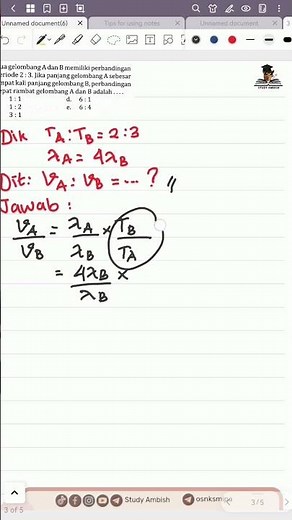 Unnamed document(6)
Tips for using notes
Unnamed document
ua gelombang A dan B memiliki perbandingan
eriode 2 : 3. Jika panjang gelombang A sebesar
mpat kali panjang gelombang B, perbandingan
epat rambat gelombang A dan B adalah . . . .
1 : 1 d. 6 : 1
1 : 2 e. 6 : 4
3 : 1
STUDY AMBISH
Dik TA : TB = 2 : 3
λA = 4λB
Dit : VA : VB = ... ? //
Jawab :
VA/VB = λA/λB × TB/TA
= 4λB/λB ×
Study Ambish
osnksmipa
3 of 5
3/5